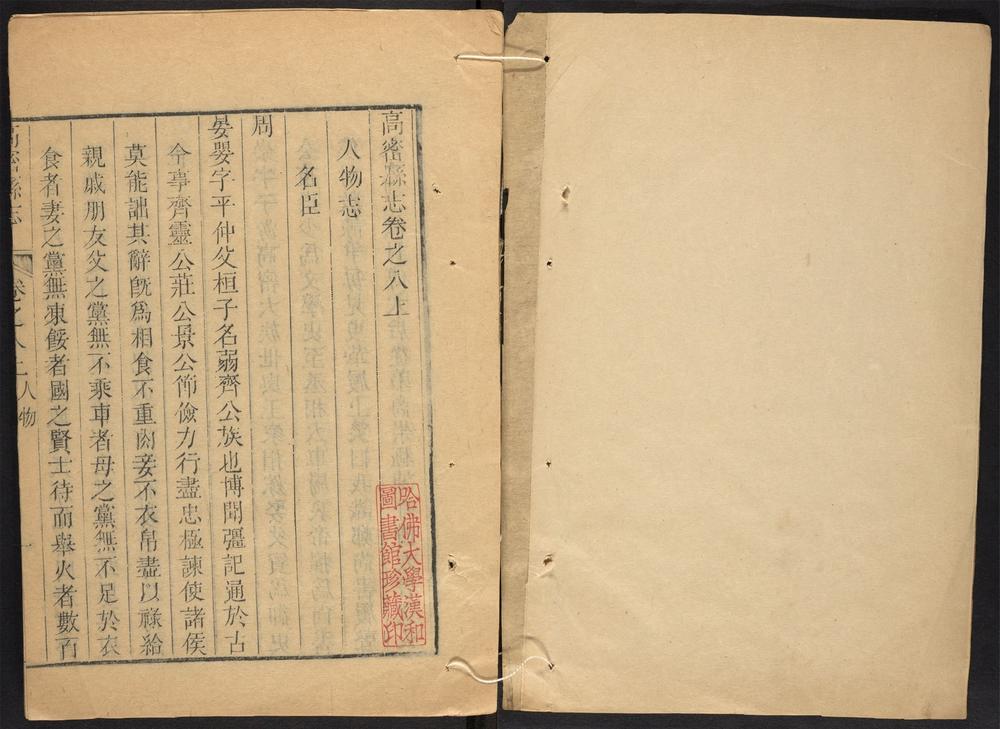 高密縣志卷之八上
人物志
名臣
周
晏嬰字平仲父桓子名蒻齊公族也博聞彊記通於古
今事齊靈公莊公景公節儉力行盡忠極諫使諸侯
莫能詘其辭旣爲相食不重肉妾不衣帛盡以祿給
親戚朋友父之黨無不乘車者母之黨無不足於衣
食者妻之黨無凍餒者國之賢士待而舉火者數百
高密縣志 卷之八上 人物 一
哈佛大學漢和
圖書館珍藏印